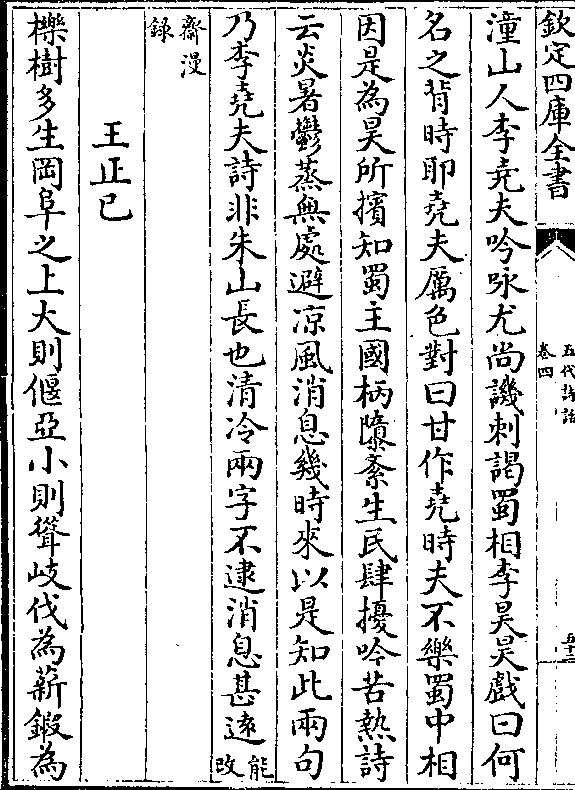 欽定四庫全書
五代詩話
卷四
五十三
潼山人李堯夫吟咏尤尚譏刺謁蜀相李昊昊戲曰何
名之背時耶堯夫厲色對曰甘作堯時夫不樂蜀中相
因是為昊所擯知蜀主國柄隳紊生民肆擾吟苦熱詩
云炎暑鬱蒸無處避凉風消息幾時來以是知此兩句
乃李堯夫詩非朱山長也清冷兩字不逮消息甚遠能改
齋漫錄
王正已
櫟樹多生岡阜之上大則偃亞小則聳岐伐為薪鍜為